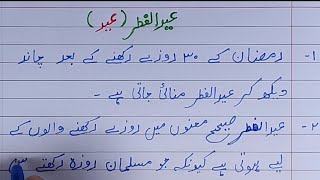 عیدالفطر (عید)
۱- رمضان کے ۳۰ روزے رکھنے کے بعد چاند
دیکھ کر عیدالفطر منائی جاتی ہے -
۲- عیدالفطر صحیح معنوں میں روزے رکھنے والوں کے
لیے ہوتی ہے کیونکہ جو مسلمان روزہ رکھتے